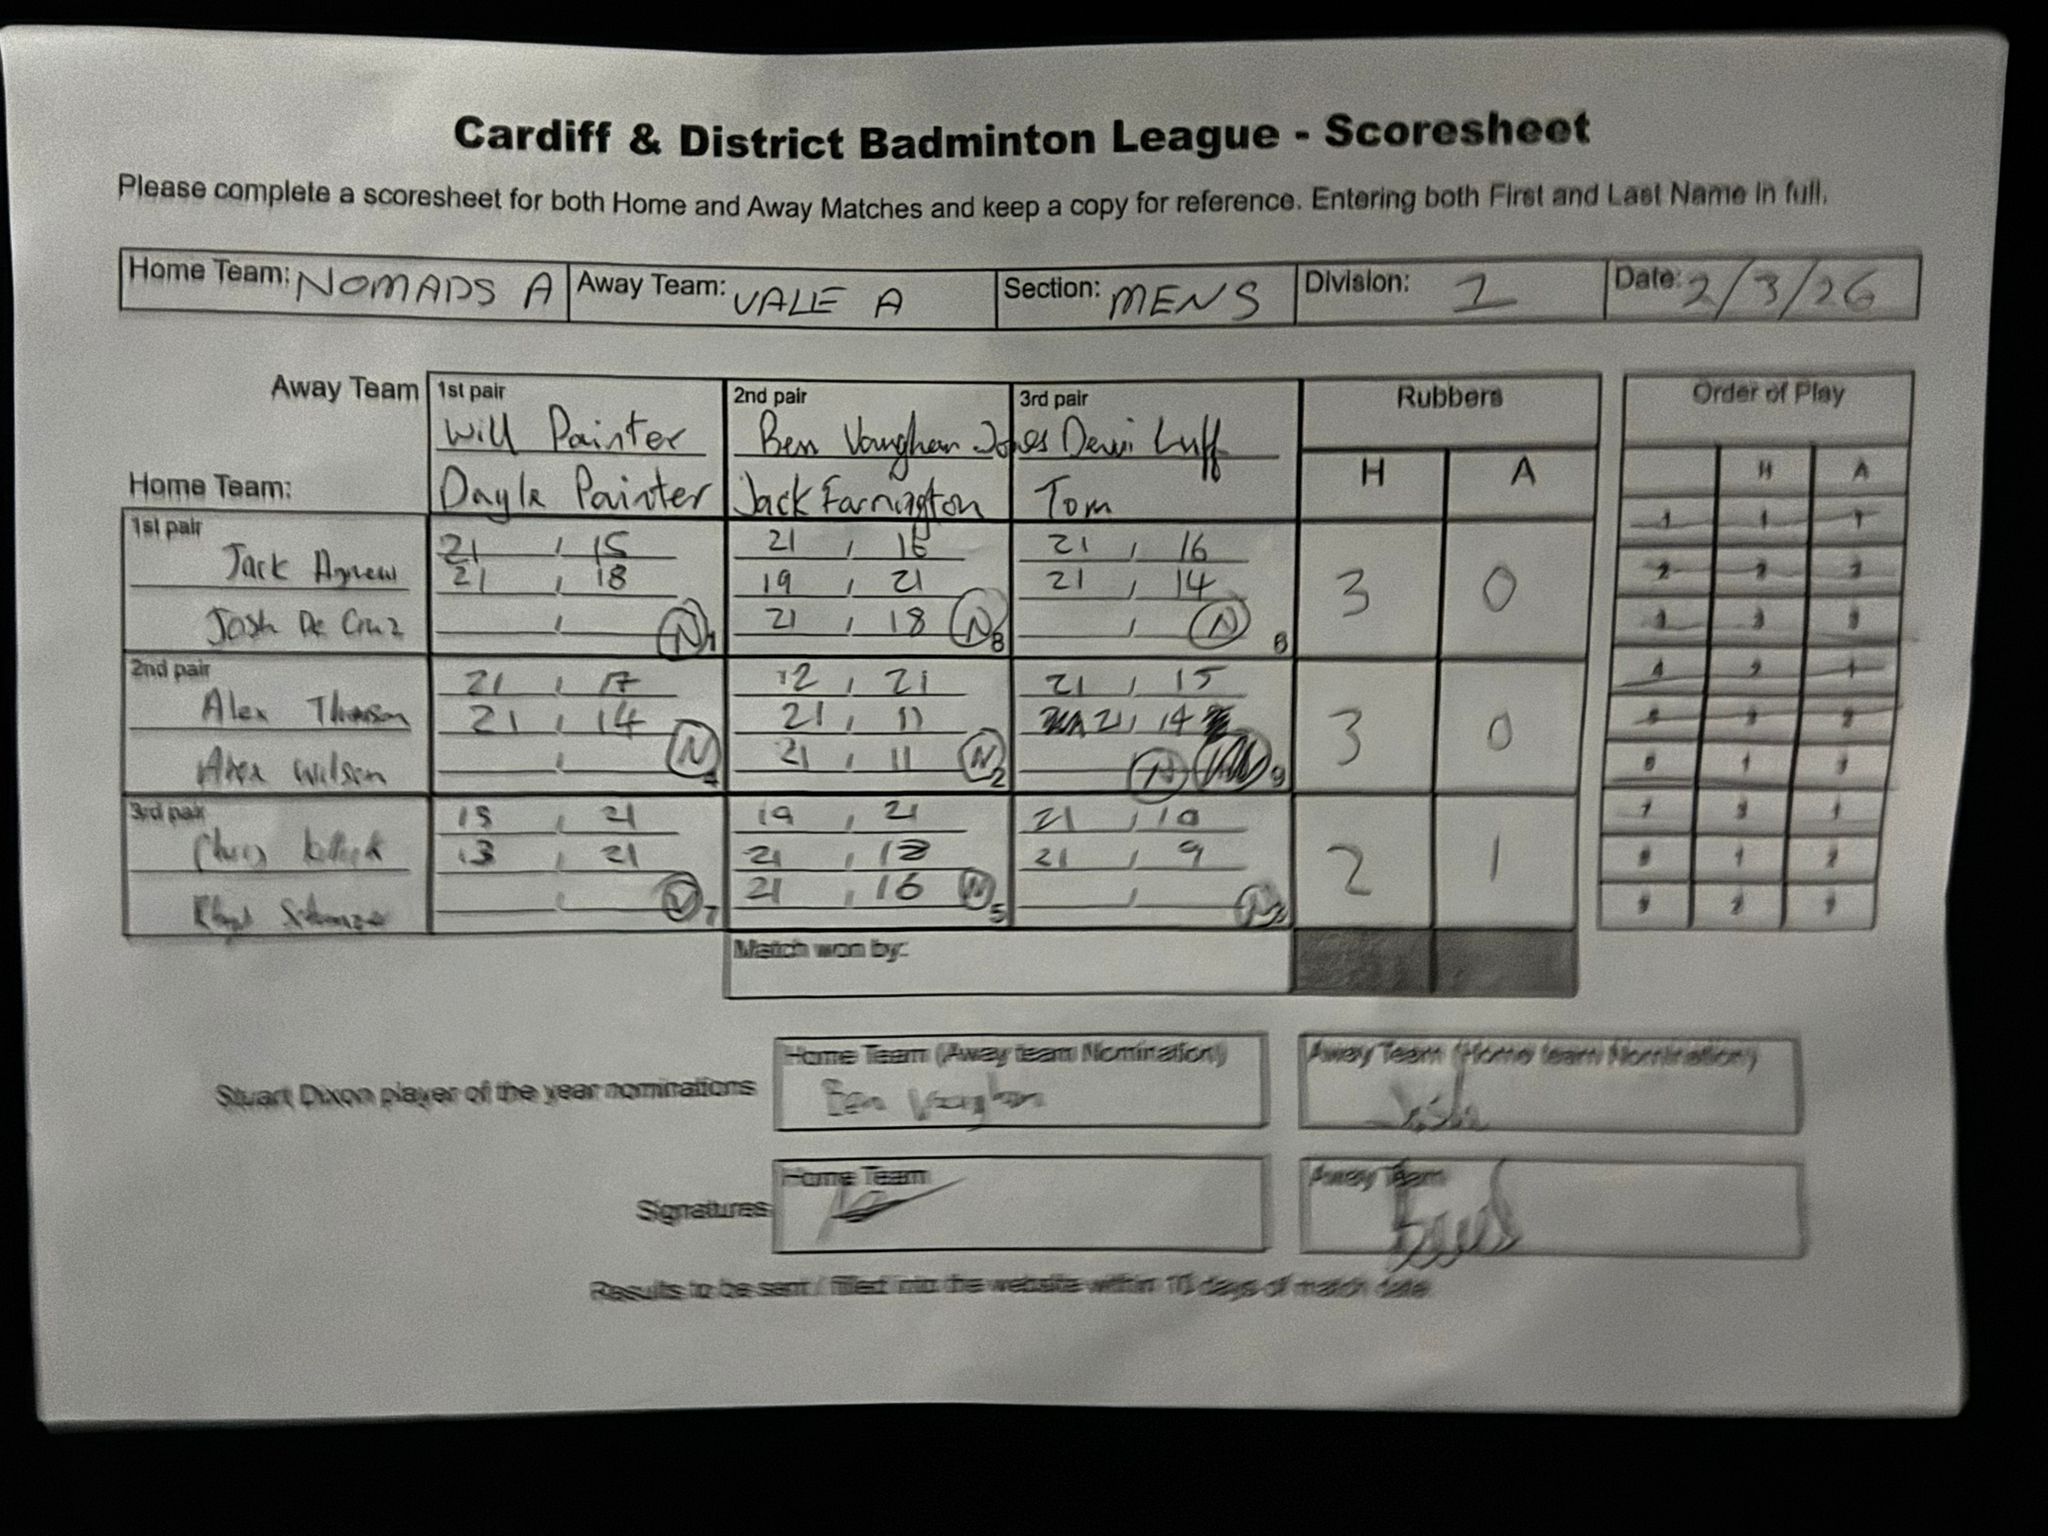 Cardiff & District Badminton League - Scoresheet
Please complete a scoresheet for both Home and Away Matches and keep a copy for reference. Entering both First and Last Name in full.
Home Team: NOMADS A Away Team: VALE A Section: MENS Division: 1 Date: 2/3/26
Away Team 1st pair 2nd pair 3rd pair Rubbers Order of Play
Will Painter Ben Vaughan Jones Dewi Luff
H A H A
Home Team: Dayle Painter Jack Farrington Tom
1st pair
Jack Agnew 21 , 15 21 , 16 21 , 16
21 , 18 19 , 21 21 , 14 3 0
Josh De Cruz , N 1 21 , 18 N 8 , N 6
2nd pair 21 , 17 12 , 21 21 , 15
Alex 21 , 14 21 , 11 21 , 14 3 0
Alex Wilson , N 4 21 , 11 N 2 , N 9
3rd pair 15 , 21 19 , 21 21 , 10
13 , 21 21 , 21 , 9 2 1
, V 7 21 , 16 N 5 , N 3
Match won by:
Home Team (Away team Nomination) Away Team (Home team Nomination)
Stuart Dixon player of the year nominations Ben Vaughan Josh
Home Team Away Team
Signatures
Results to be sent / filled into the website within 10 days of match date